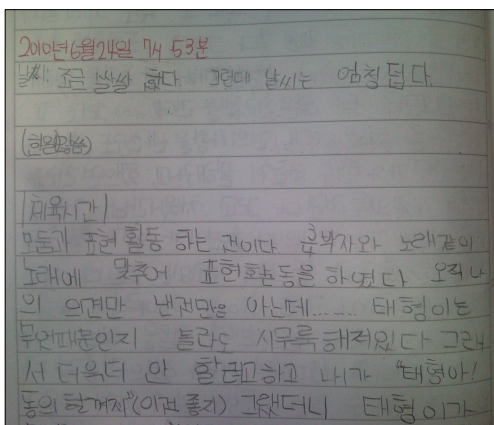 2010년 6월 24일 7시 53분
날씨: 조금 쌀쌀 했다. 그런데 날씨는 엄청 덥다.
체육시간
모둠과 표현 활동 하는 건이다 3/4박자와 노래같이
노래에 맞추어 표현활동을 하였다 오직 나
의 의견만 낸건만은 아닌데....... 태형이는
무엇때문인지 놀라도 시무룩해져있다 그래
서 더욱더 안 할려고하고 내가 "태형아!
동의 할꺼지"(이건 좋지) 그랬더니 태형이가